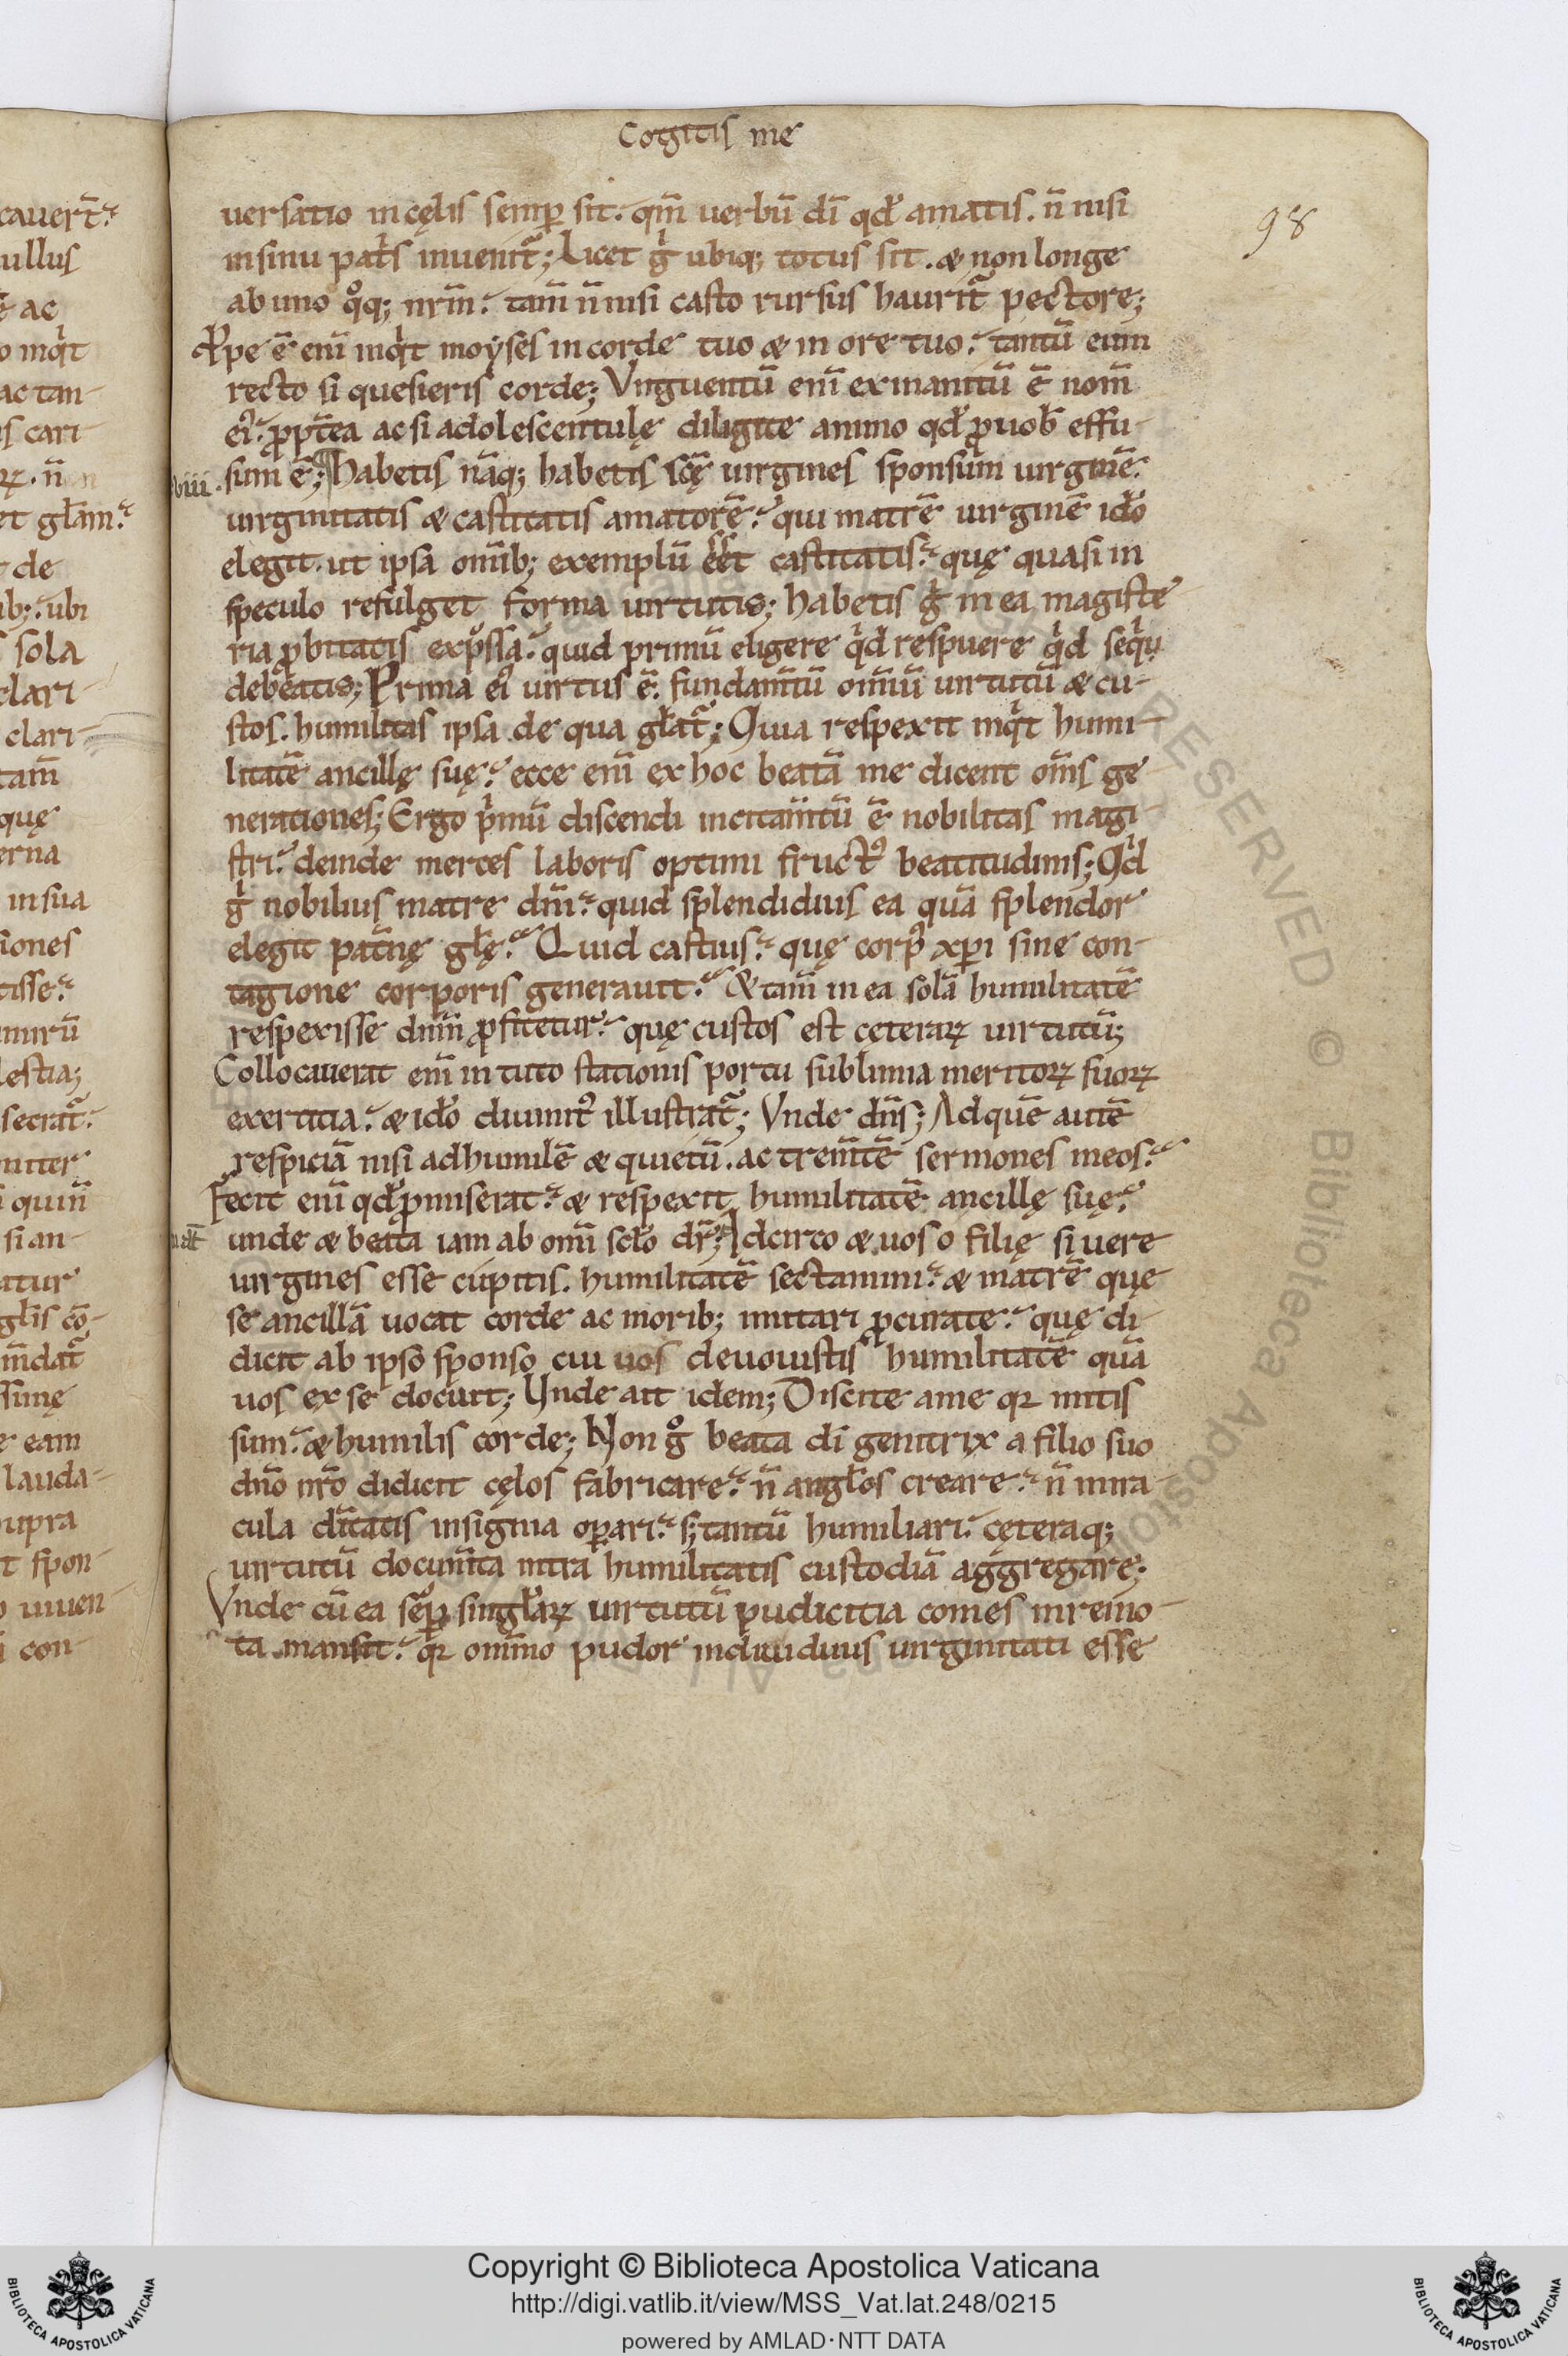 Cogitis me
98
uersatio in cęlis semp̱ sit. qm̄ uerbū dī qđ amatis. n̄ nisi
in sinu patͥs inuenit᷑; Licet gͥ ubiq; totus sit. & non longe
ab uno qͦq; nrm̄. tam̄ n̄ nisi casto rursus haurit᷑ pectore;
Ꝓpe ē eni̅ inqͥt moẏses in corde tuo & in ore tuo. tantū eum
recto si quesieris corde; Vnguentū eni̅ exinanitū ē nom̄
eiꝰ. ꝓpt̄ea ac si adolescentulę diligite animo qđ ꝓ uob̄ effu-
viii. sum ē; Habetis nāq; habetis sc̄ę uirgines sponsum uirginē.
uirginitatis & castitatis amatorē. qui matrē uirginē iđo
elegit. ut ipsa om̄ib; exemplū eēt castitatis. quę quasi in
speculo refulget forma uirtutis; Habetis gͥ in ea magiste
ria ꝓbitatis exp̄ssa. quid primū eligere qͥd respuere qͥd seqͥ
debeatis; Prima eiꝰ uirtus ē. fundam̄tū om̄iū uirtutū & cu-
stos. humilitas ipsa de qua gł̄at᷑; Quia respexit inqͥt humi-
litatē ancillę suę. ecce eni̅ ex hoc beatā me dicent om̄s ge
nerationes; Ergo pͥmū discendi incitam̄tū ē nobilitas magi
stri. deinde merces laboris optimi fructꝰ beatitudinis; Qͥd
gͥ nobilius matre dn̄i. quid splendidius ea quā splendor
elegit pat̄nę gł̄ę. Quid castius. quę corpꝰ xp̄i sine con-
tagione corporis generauit. & tam̄ in ea solā humilitatē
respexisse dnm̄ ꝓfitetur. quę custos est ceterarꝝ uirtutū;
Collocauerat eni̅ in tuto stationis portu sublimia meritoꝝ suoꝝ
exercitia. & iđo diuinitꝰ illustrat᷑; Vnde dn̄s; Ad quē autē
respiciā nisi ad humilē & quietū. ac trem̄tē sermones meos.
Fecit eni̅ qđ ꝓmiserat. & respexit humilitatē ancillę suę.
unde & beata iam ab om̄i scł̄o dr̄; Idcirco & uos o filię si uere
uirgines esse cupitis. humilitatē sectamini. & matrē quę
se ancillā uocat corde ac morib; imitari ꝓcurate. quę di-
dicit ab ipso sponso cui uos deuouistis humilitatē quā
uos ex se docuit; Unde ait idem; Discite a me qꝛ mitis
sum. & humilis corde; Non gͦ beata dī genitrix a filio suo
dn̄o nr̄o didicit cęlos fabricare. n̄ angł̄os creare. n̄ mira-
cula dīt̄atis insignia op̱ari. s; tantū humiliari. cęteraq;
uirtutū docum̄ta intra humilitatis custodiā aggregare;
Vnde cū ea semp̱ singł̄arꝝ uirtutū pudicitia comes in remo-
ta mansit. qꝛ om̄ino pudor indiuiduus uirginitati esse
Copyright © Biblioteca Apostolica Vaticana
http://digi.vatlib.it/view/MSS_Vat.lat.248/0215
powered by AMLAD·NTT DATA